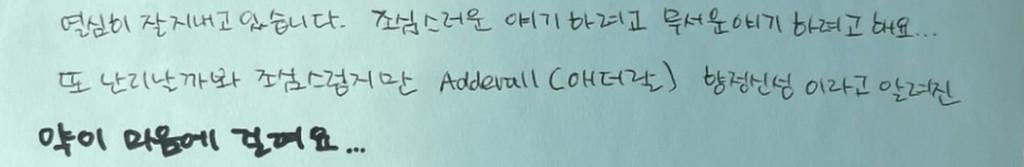 열심히 잘지내고 있습니다. 조심스러운 얘기 하려고 무서운얘기 하려고 해요...
또 난리날까봐 조심스럽지만 Adderall (애더럴) 향정신성 이라고 알려진
약이 마음에 걸려요...